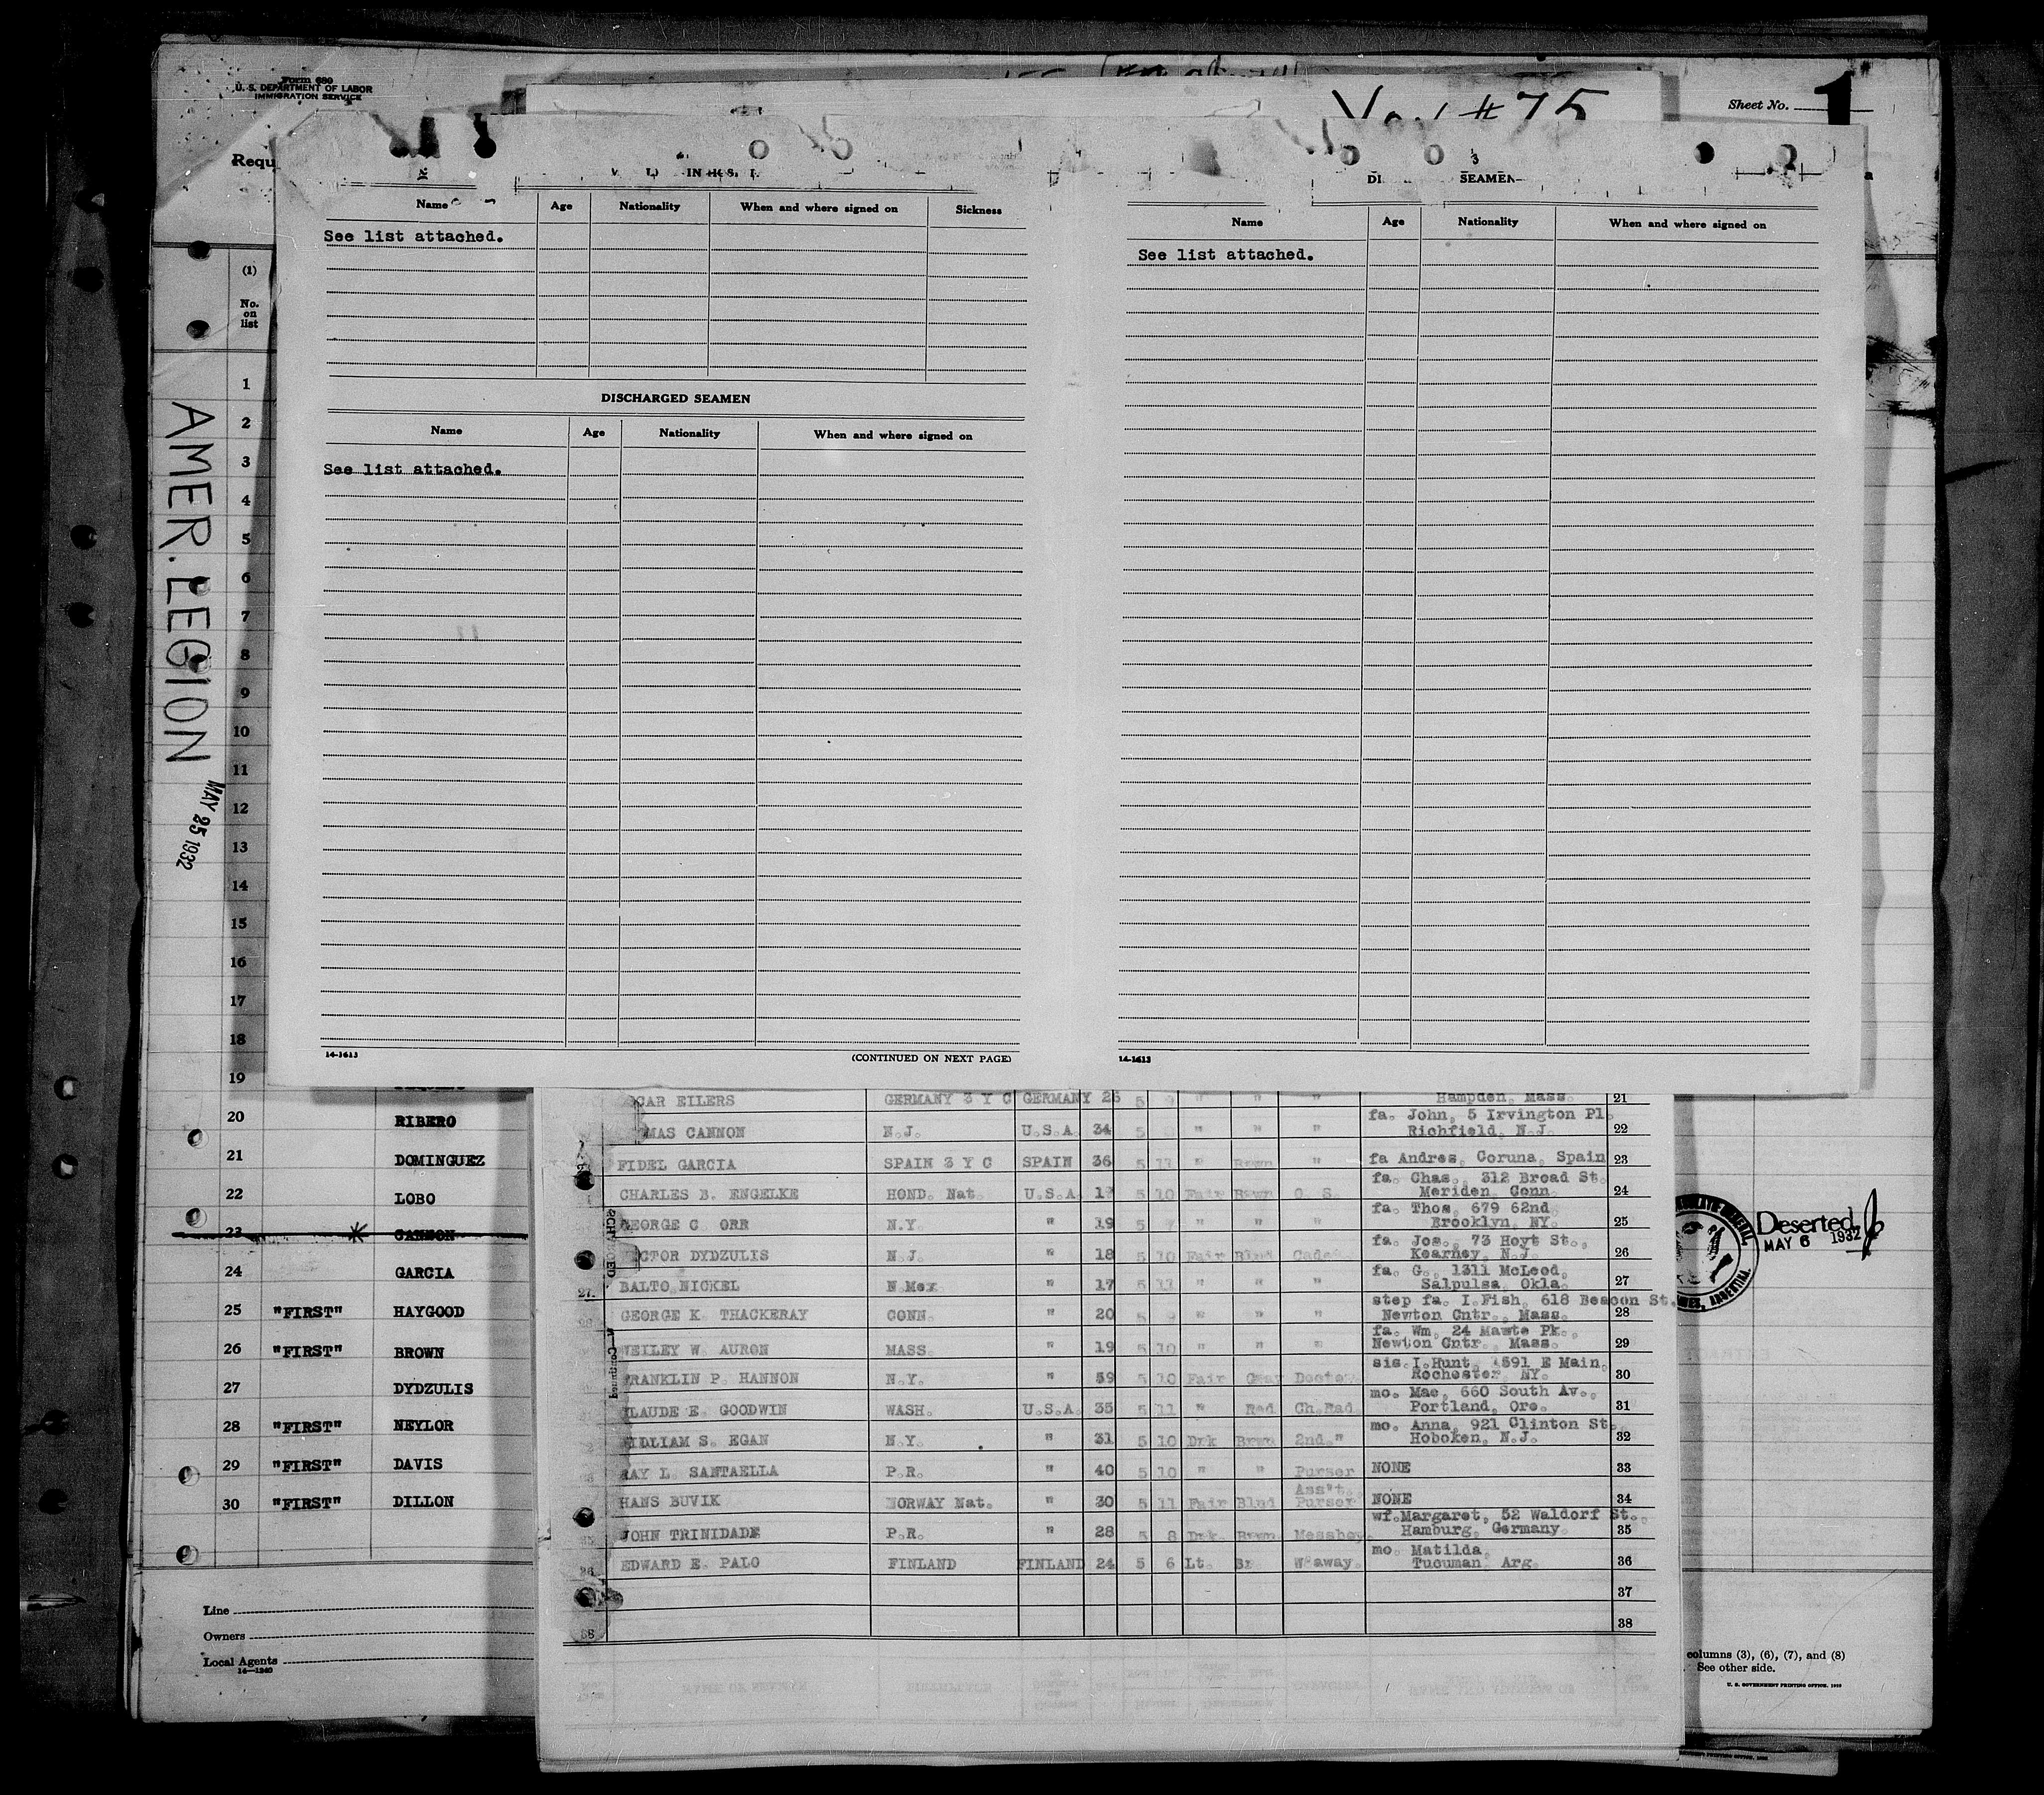 Form 680
U. S. DEPARTMENT OF LABOR
IMMIGRATION SERVICE
# 75
Sheet No. 1
Requ
SEAMEN
Name Age Nationality When and where signed on Sickness
See list attached.
DISCHARGED SEAMEN
Name Age Nationality When and where signed on
See list attached.
14-1613 (CONTINUED ON NEXT PAGE)
3
Name Age Nationality When and where signed on
See list attached.
14-1613
AMER. LEGION
MAY 25 1932
(1)
No.
on
list
1
2
3
4
5
6
7
8
9
10
11
12
13
14
15
16
17
18
19
20 RIBERO
21 DOMINGUEZ
22 LOBO
23 CANNON
24 GARCIA
25 "FIRST" HAYGOOD
26 "FIRST" BROWN
27 DYDZULIS
28 "FIRST" NEYLOR
29 "FIRST" DAVIS
30 "FIRST" DILLON
Line
Owners
Local Agents
14-1240
CAR EILERS GERMANY 3 Y C GERMANY 5 9 " " " Hampden, Mass. 21
MAS CANNON N.J. U.S.A. 34 5 " " " fa. John, 5 Irvington Pl.
Richfield, N.J. 22
FIDEL GARCIA SPAIN 3 Y C SPAIN 36 5 11 " Brwn " fa Andres, Coruna, Spain 23
CHARLES B. ENGELKE HOND. Nat. U.S.A. 5 10 Fair Brwn O. S. fa. Chas., 312 Broad St.
Meriden, Conn. 24
GEORGE C ORR N.Y. " 19 5 " " " fa. Thos, 679 62nd,
Brooklyn, NY. 25
CTOR DYDZULIS N.J. " 18 5 10 Fair Blnd fa. Jos., 73 Hoyt St.,
Kearney, N.J. 26
BALTO NICKEL N.Mex. " 17 5 11 " " " fa. G., 1311 McLeod,
Salpulsa, Okla. 27
GEORGE K. THACKERAY CONN. " 20 5 9 " " " step fa. I.Fish, 618 Beacon St.
Newton Cntr., Mass. 28
WEILEY W. AURON MASS. " 19 5 10 " " " fa. Wm, 24 Pk.,
Newton Cntr., Mass. 29
FRANKLIN P. HANNON N.Y. " 59 5 10 Fair Gray Doctor sis.I.Hunt, 1591 E Main,
Rochester, NY. 30
CLAUDE E. GOODWIN WASH. U.S.A. 35 5 11 " Red Ch.Rad. mo. Mae, 660 South Av.,
Portland, Ore. 31
WIDLIAM S. EGAN N.Y. " 31 5 10 Drk Brwn 2nd." mo. Anna, 921 Clinton St.
Hoboken, N.J. 32
RAY L. SANTAELLA P.R. " 40 5 10 " " Purser NONE 33
HANS BUVIK NORWAY Nat. " 30 5 11 Fair Blnd Ass't.
Purser NONE 34
JOHN TRINIDADE P.R. " 28 5 8 Drk. Brwn Messboy. wf.Margaret, 52 Waldorf St.,
Hamburg, Germany. 35
EDWARD E. PALO FINLAND FINLAND 24 5 6 Lt. Br W'away. mo. Matilda,
Tucuman, Arg. 36
37
38
Deserted
MAY 6 1932
columns (3), (6), (7), and (8)
See other side.
U. S. GOVERNMENT PRINTING OFFICE